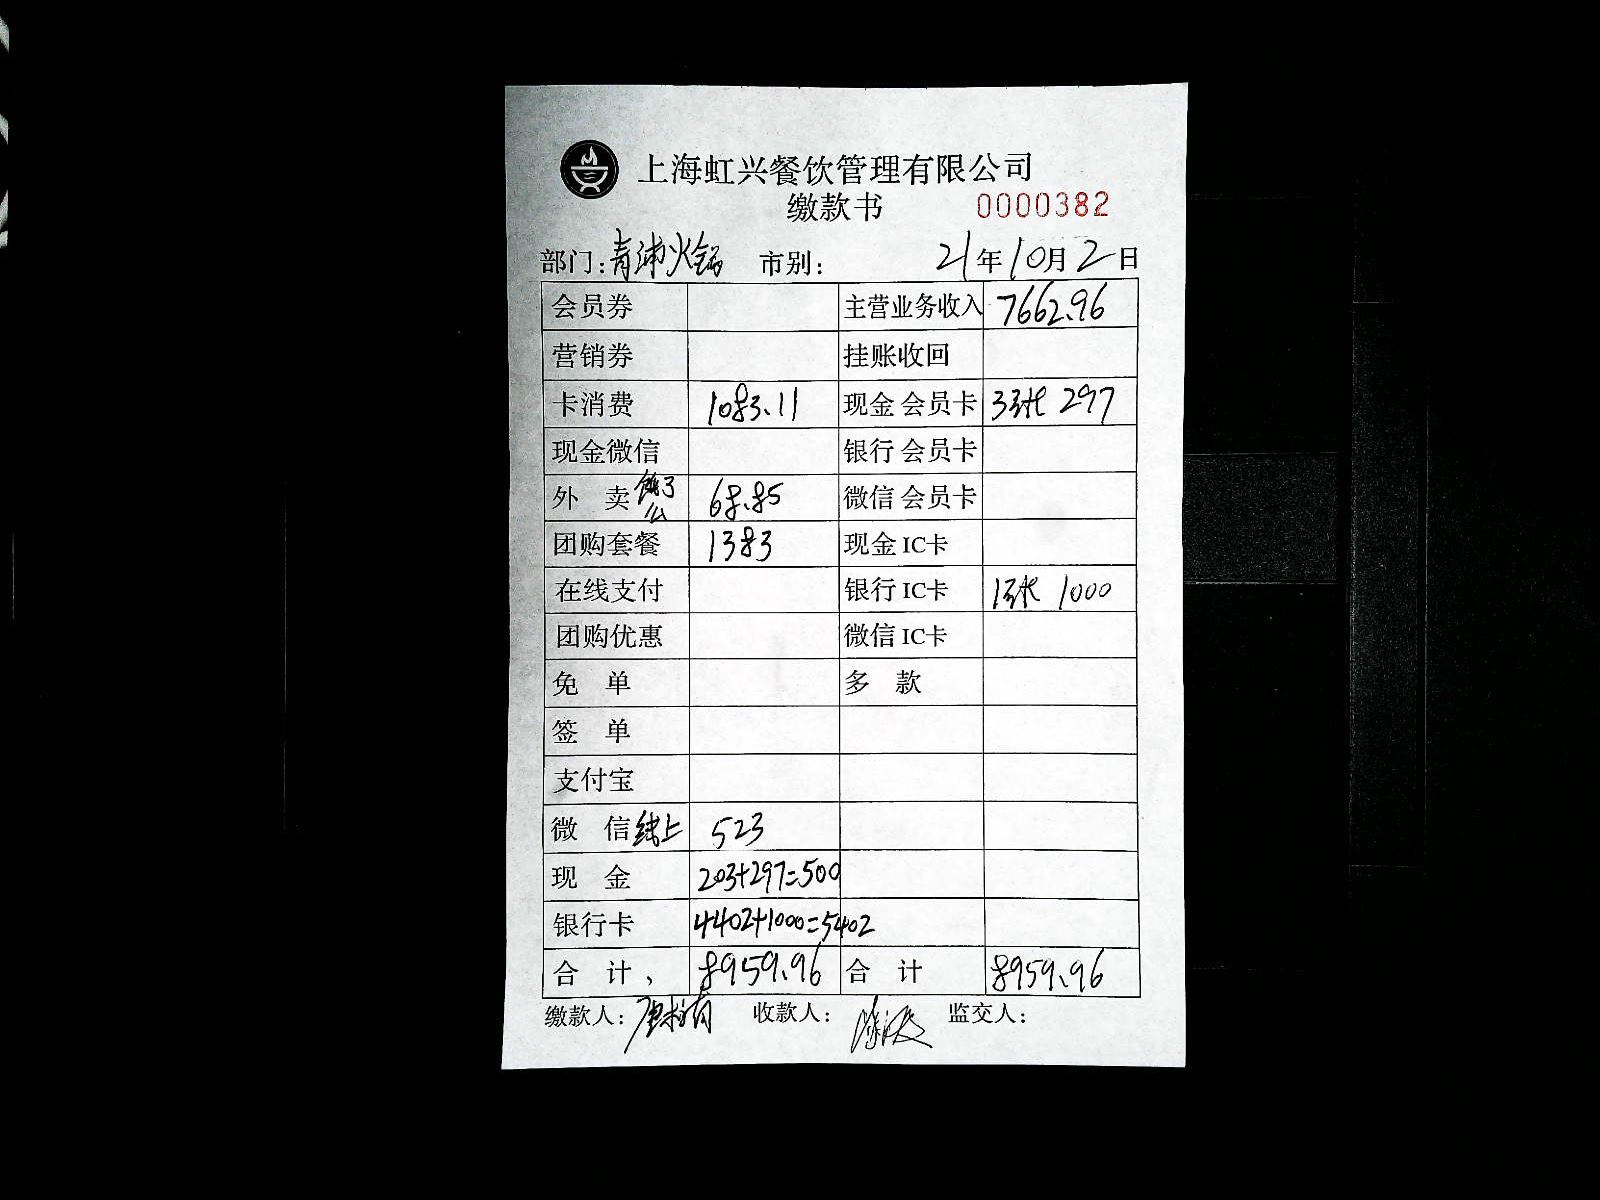 上海虹兴餐饮管理有限公司
缴款书 0000382
部门：青浦火锅 市别： 21年10月2日
会员券 主营业务收入 7662.96
营销券 挂账收回
卡消费 1083.11 现金 会员卡 3张 297
现金微信 银行 会员卡
外 卖 饿了么 68.85 微信 会员卡
团购套餐 1383 现金 IC卡
在线支付 银行 IC卡 1张 1000
团购优惠 微信 IC卡
免 单 多 款
签 单
支付宝
微 信 线上 523
现 金 203+297=500
银行卡 4402+1000=5402
合 计、 8959.96 合 计 8959.96
缴款人： 收款人： 监交人：